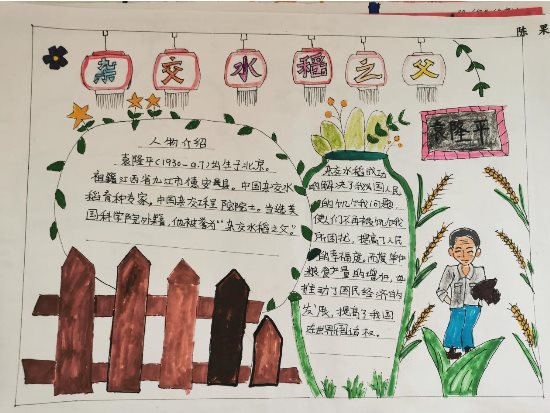 陈果
杂交水稻之父
袁隆平
人物介绍
袁隆平(1930-9.7)出生于北京。
祖籍江西省九江市德安县。中国杂交水
稻育种专家。中国杂交工程院院士。当选美
国科学院外籍。他被誉为"杂交水稻之父"。
杂交水稻成功
的解决了我国人民
的饥饿问题
使人们不再被饥饿
所困扰，提高了人民
的幸福度。而莫中
粮食产量的增加，也
推动了国民经济的
发展，提高了我国
在世界国话权。